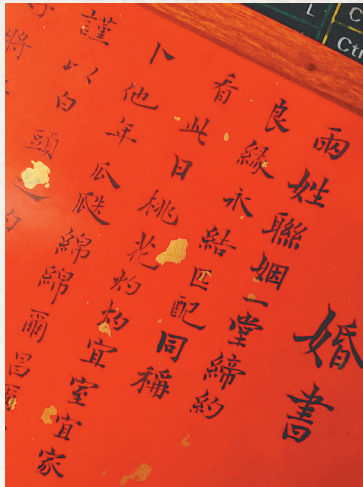 婚書
兩姓聯姻一堂締約
良緣永結匹配同稱
看此日桃花灼灼宜室宜家
卜他年瓜瓞綿綿爾昌爾
謹以白頭之約
將
L
C
Ctr